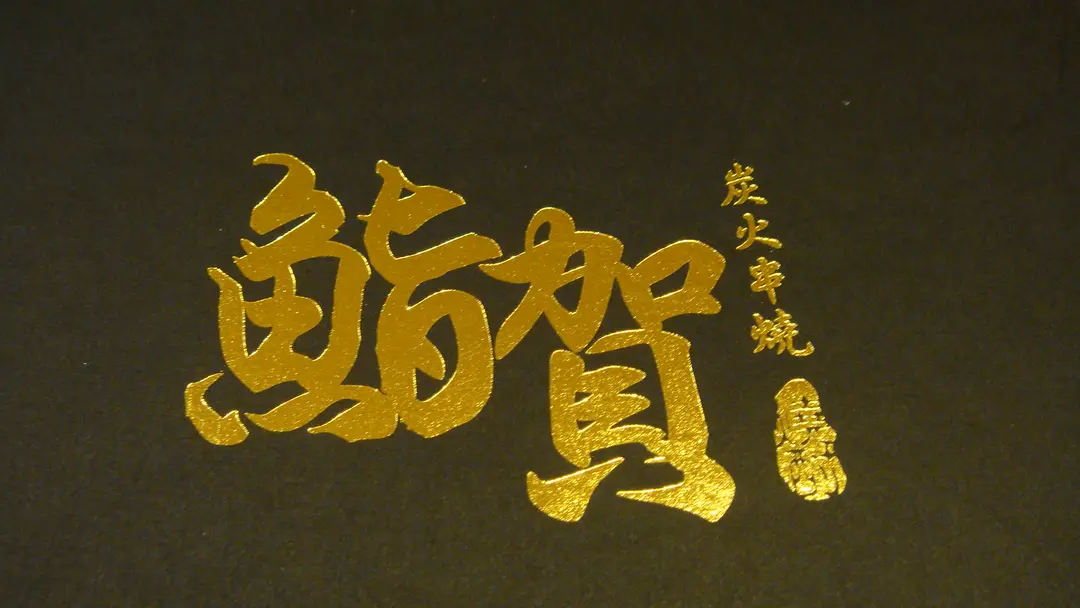 鮨賀
炭火串燒